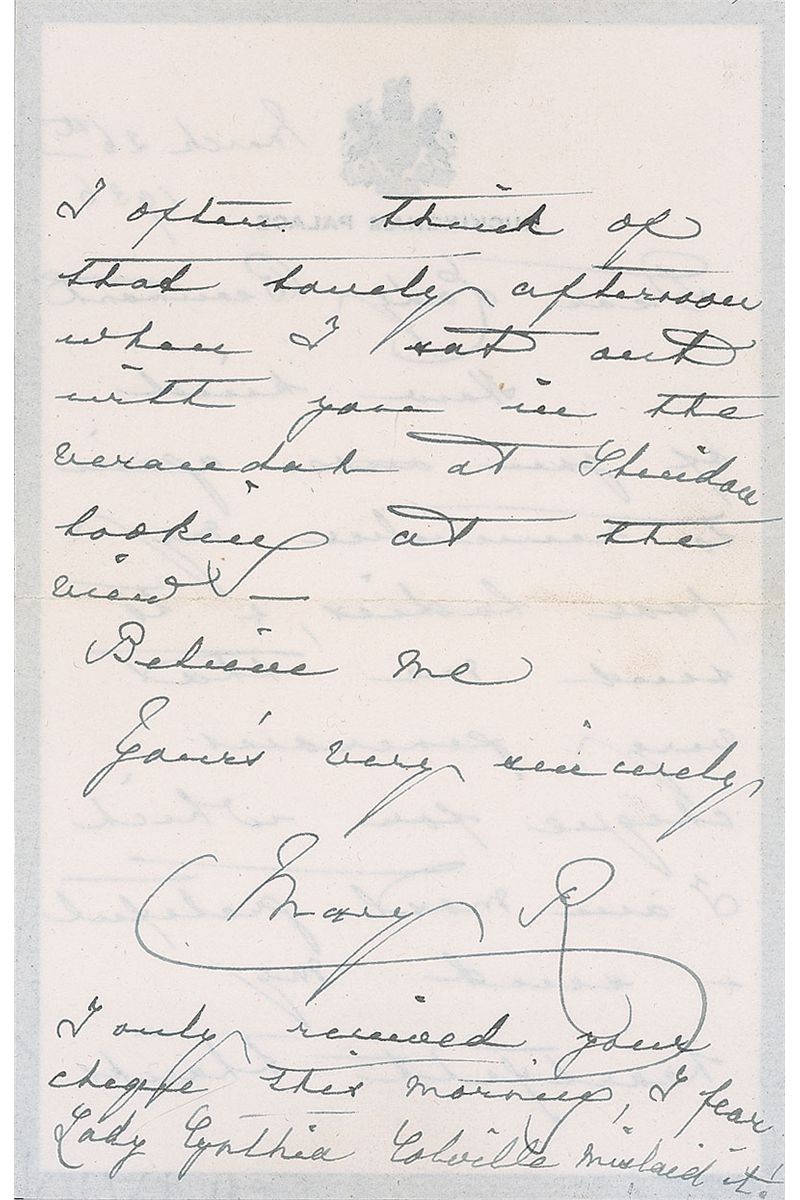 I often think of
that lovely afternoon
when I sat out
with you in the
verandah at Shuidon
looking at the
view —
Believe me
Yours very sincerely
Mary R
I only received your
cheque this morning, I fear
Lady Cynthia Colville mislaid it!